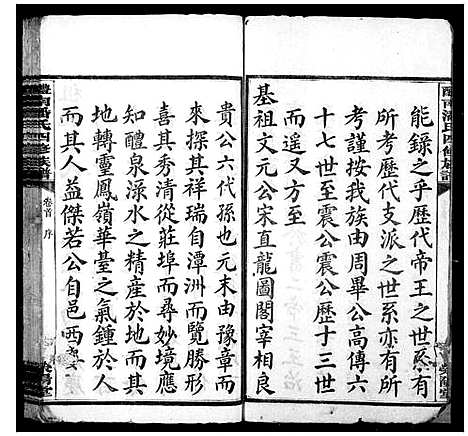 醴南潘氏四修族譜
能錄之乎歷代帝王之世系有
所考歷代支派之世系亦有所
考謹按我族由周畢公高傳六
十七世至震公震公歷十三世
而遥又方至
基祖文元公宋直龍圖閣宰相良
貴公六代孫也元末由豫章而
來探其祥瑞自潭洲而覽勝形
喜其秀清從莊埠而尋妙境應
知醴泉淥水之精産於地而其
地轉靈鳳嶺華臺之氣鍾於人
而其人益傑若公自邑西
醴南潘氏四修族譜
卷首
序
榮陽堂